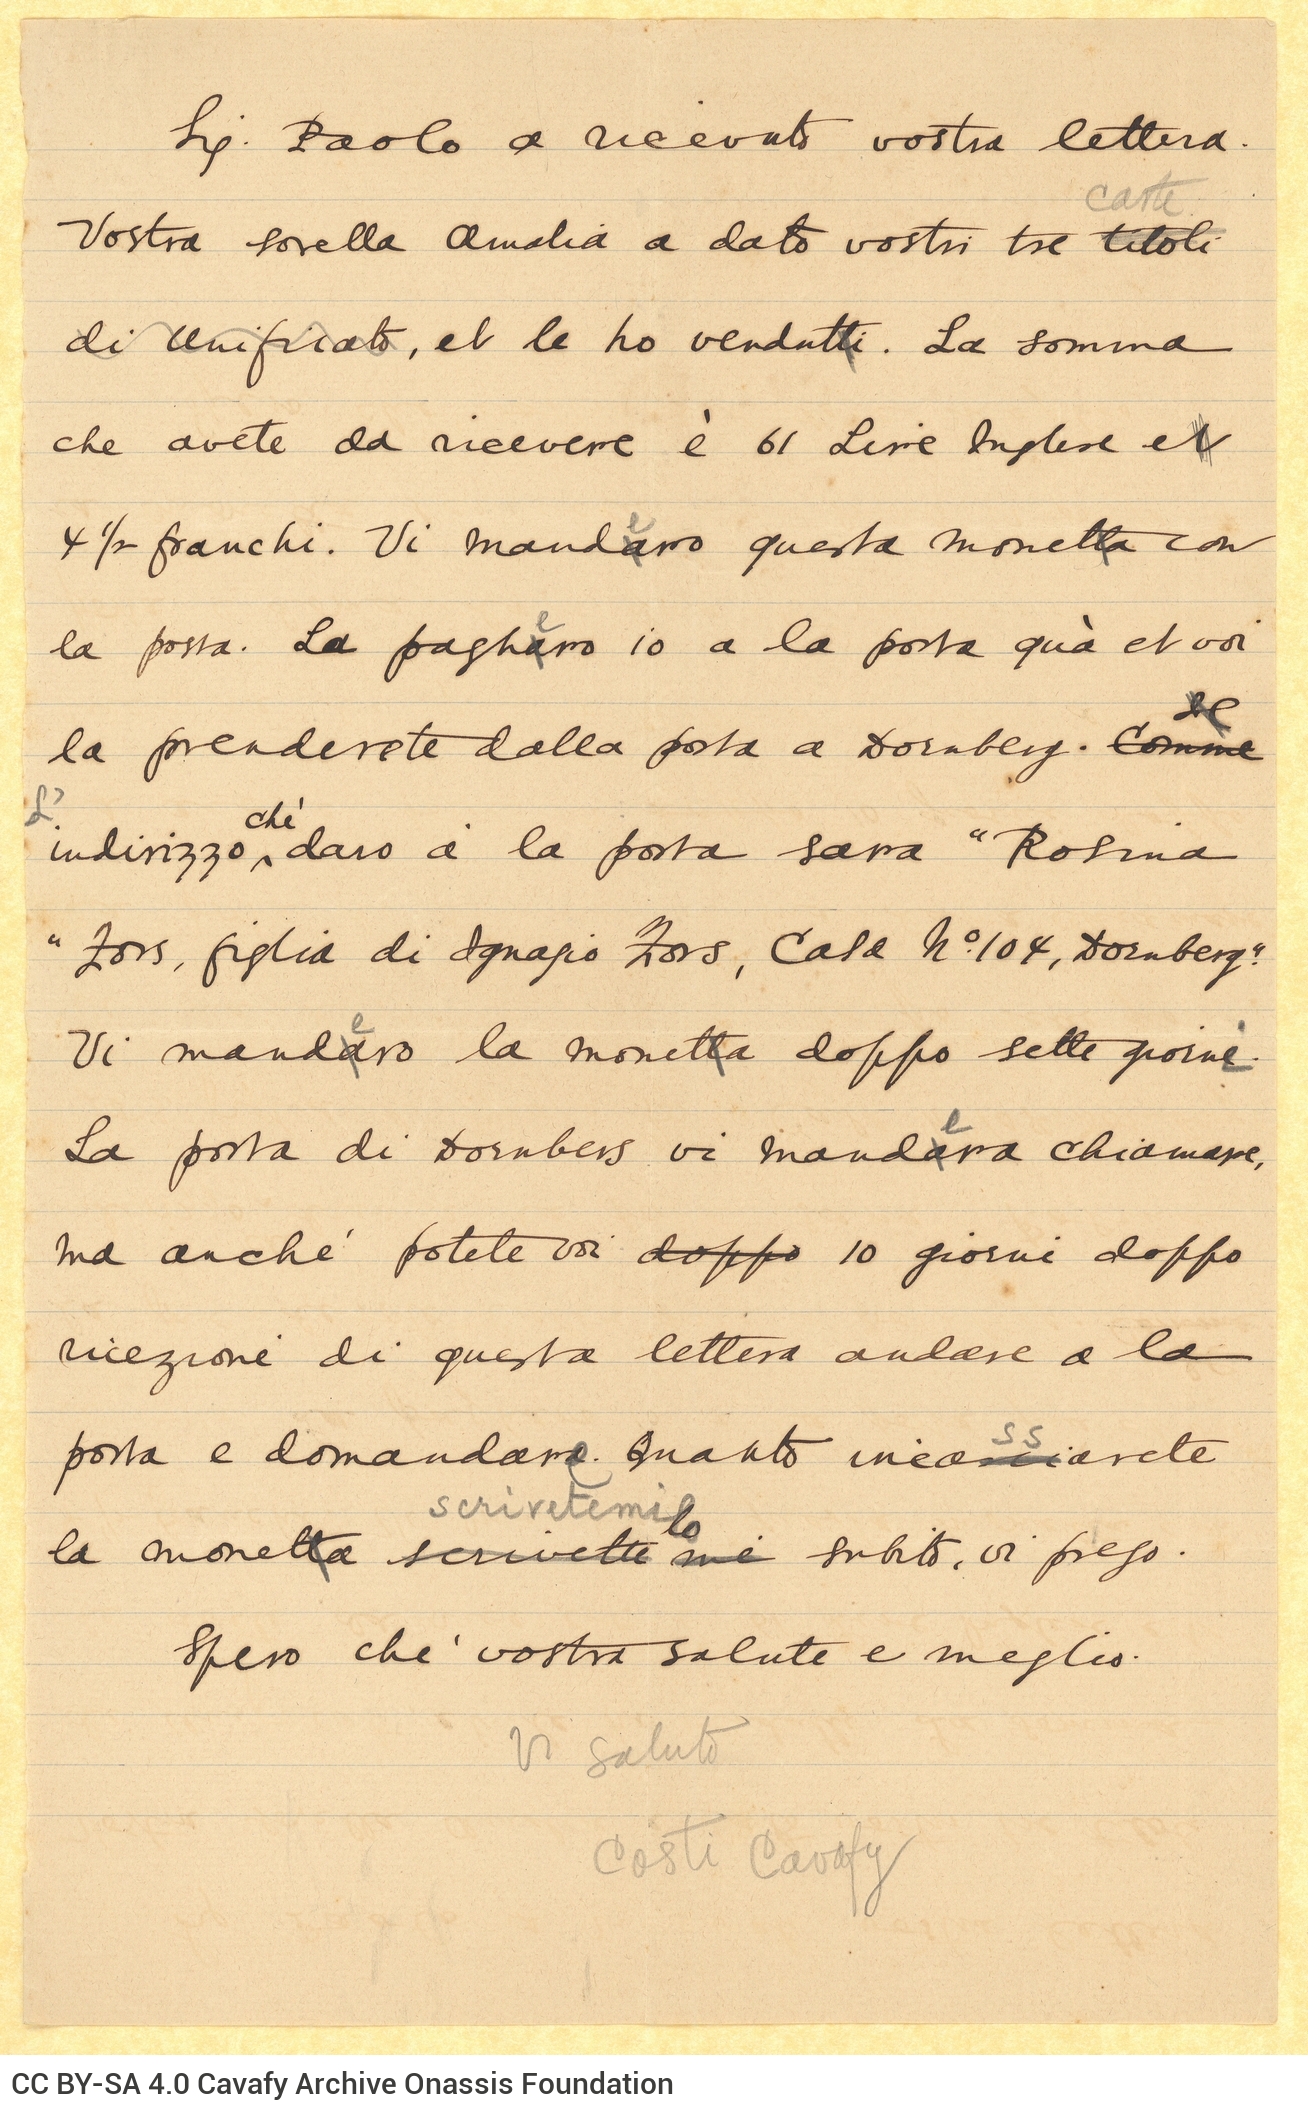 Sig. Paolo a ricevuto vostra lettera.
carte
Vostra sorella Amalia a dato vostri tre titoli
di Unificato, et le ho vendutti. La somma
che avete da ricevere è 61 Lire Inglese et
4 1/2 franchi. Vi mandaro questa monetta con
e
la posta. La pagharo io a la posta quà et voi
e
la prenderete dalla posta a Dornberg. Comme
L'
indirizzo chè daro a la posta sara "Rosina
"Zors, figlia di Ignazio Zors, Casa No. 104, Dornberg".
e
Vi mandaro la monetta doppo sette giorni.
e
La posta di Dornberg vi mandara chiamare,
ma anché potete voi doppo 10 giorni doppo
ricezione di questa lettera andare a la
ss
posta e domandare. Quanto incasciarete
scrivetemilo
la monetta scrivette mi subito, vi prego.
Spero che' vostra salute e meglio.
Vi saluto
Costi Cavafy
CC BY-SA 4.0 Cavafy Archive Onassis Foundation